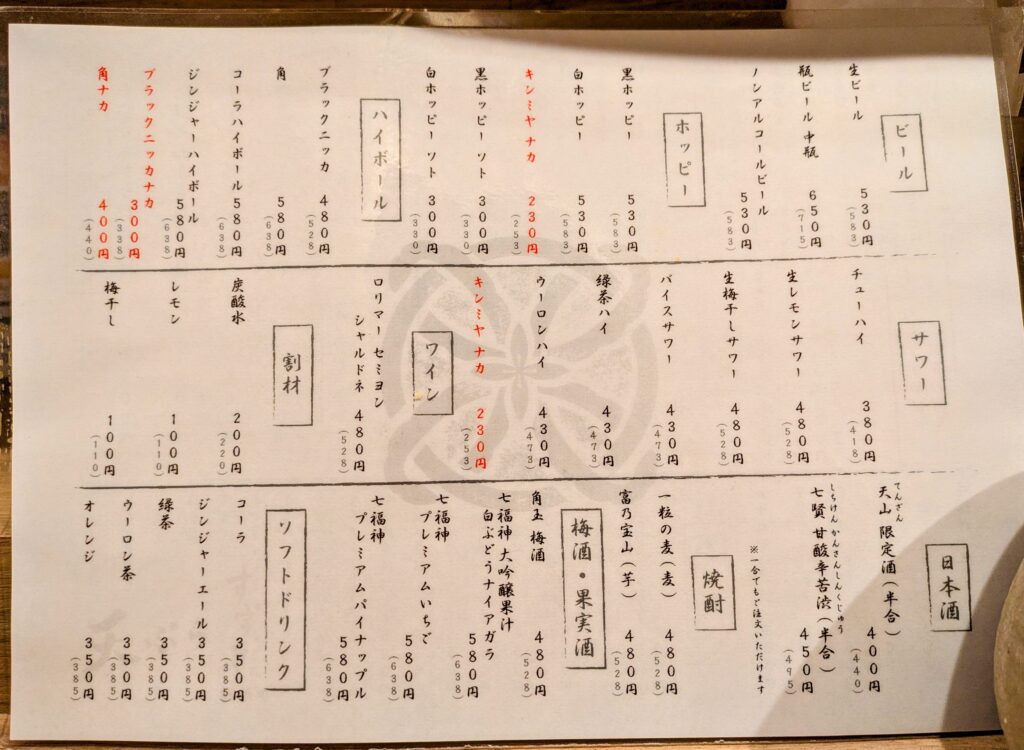 ビール
生ビール 530円 (583)
瓶ビール 中瓶 650円 (715)
ノンアルコールビール 530円 (583)
ホッピー
黒ホッピー 530円 (583)
白ホッピー 530円 (583)
キンミヤ ナカ 230円 (253)
黒ホッピー ソト 300円 (330)
白ホッピー ソト 300円 (330)
ハイボール
ブラックニッカ 480円 (528)
角 580円 (638)
コーラハイボール 580円 (638)
ジンジャーハイボール 580円 (638)
ブラックニッカナカ 300円 (338)
角ナカ 400円 (440)
サワー
チューハイ 380円 (418)
生レモンサワー 480円 (528)
生梅干しサワー 480円 (528)
バイスサワー 430円 (473)
緑茶ハイ 430円 (473)
ウーロンハイ 430円 (473)
キンミヤ ナカ 230円 (253)
ワイン
ロリマー セミヨン
シャルドネ 480円 (528)
割材
炭酸水 200円 (220)
レモン 100円 (110)
梅干し 100円 (110)
日本酒
てんざん
天山 限定酒(半合) 400円 (440)
しちけん かんさんしんくじゅう
七賢 甘酸辛苦渋(半合) 450円 (495)
※一合でもご注文いただけます
焼酎
一粒の麦(麦) 480円 (528)
富乃宝山(芋) 480円 (528)
梅酒・果実酒
角玉 梅酒 480円 (528)
七福神 大吟醸果汁
白ぶどうナイアガラ 580円 (638)
七福神
プレミアムいちご 580円 (638)
七福神
プレミアムパイナップル 580円 (638)
ソフトドリンク
コーラ 350円 (385)
ジンジャーエール 350円 (385)
緑茶 350円 (385)
ウーロン茶 350円 (385)
オレンジ 350円 (385)